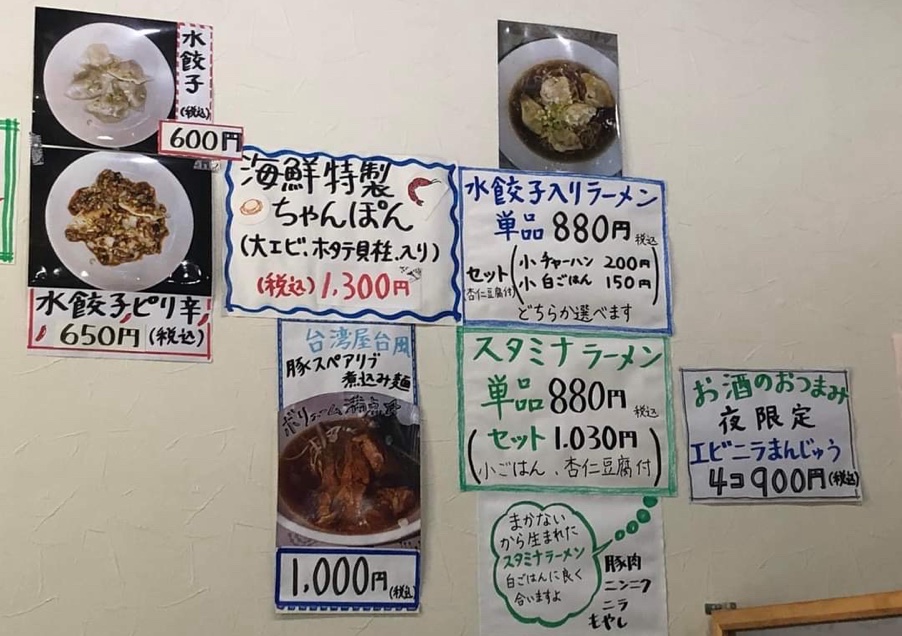 水餃子
(税込)
600円
水餃子ピリ辛
650円(税込)
海鮮特製
ちゃんぽん
(大エビ、ホタテ貝柱、入り)
(税込)1,300円
台湾屋台風
豚スペアリブ
煮込み麺
ボリューム満点
1,000円(税込)
水餃子入りラーメン
単品 880円 税込
セット
(杏仁豆腐付)
小 チャーハン 200円
小 白ごはん 150円
どちらか選べます
スタミナラーメン
単品 880円 税込
セット 1.030円
小ごはん、杏仁豆腐付
まかない
から生まれた
スタミナラーメン
白ごはんに良く
合いますよ
豚肉
ニンニク
ニラ
もやし
お酒のおつまみ
夜限定
エビニラまんじゅう
4コ900円(税込)